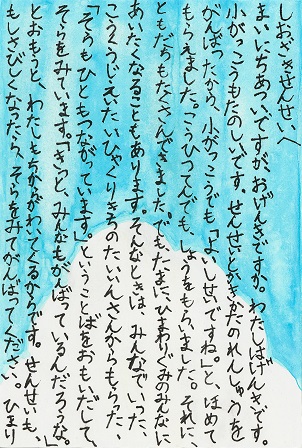 しおざきせんせいへ
まいにちあついですが、おげんきですか。わたしはげんきです。
小がっこうもたのしいです。せんせいといきかたのれんしゅうを
がんばったから、小がっこうでも「よいしせいですね。」と、ほめて
もらえました。こうひつてんでも、しょうをもらいました。それに、
ともだちもたくさんできました。でもたまに、ひまわりぐみのみんなに
あいたくなることもあります。そんなときは、みんなでいった、
こうくうじえいたいひゃくりきちのたいいんさんからもらった、
「そらもひともつながっています」ということばをおもいだして、
そらをみています。「きっと、みんなもがんばっているんだろうな。」
とおもうと、わたしもちからがわいてくるからです。せんせいも、
もしさびしくなったら、そらをみてがんばってください。ひまり